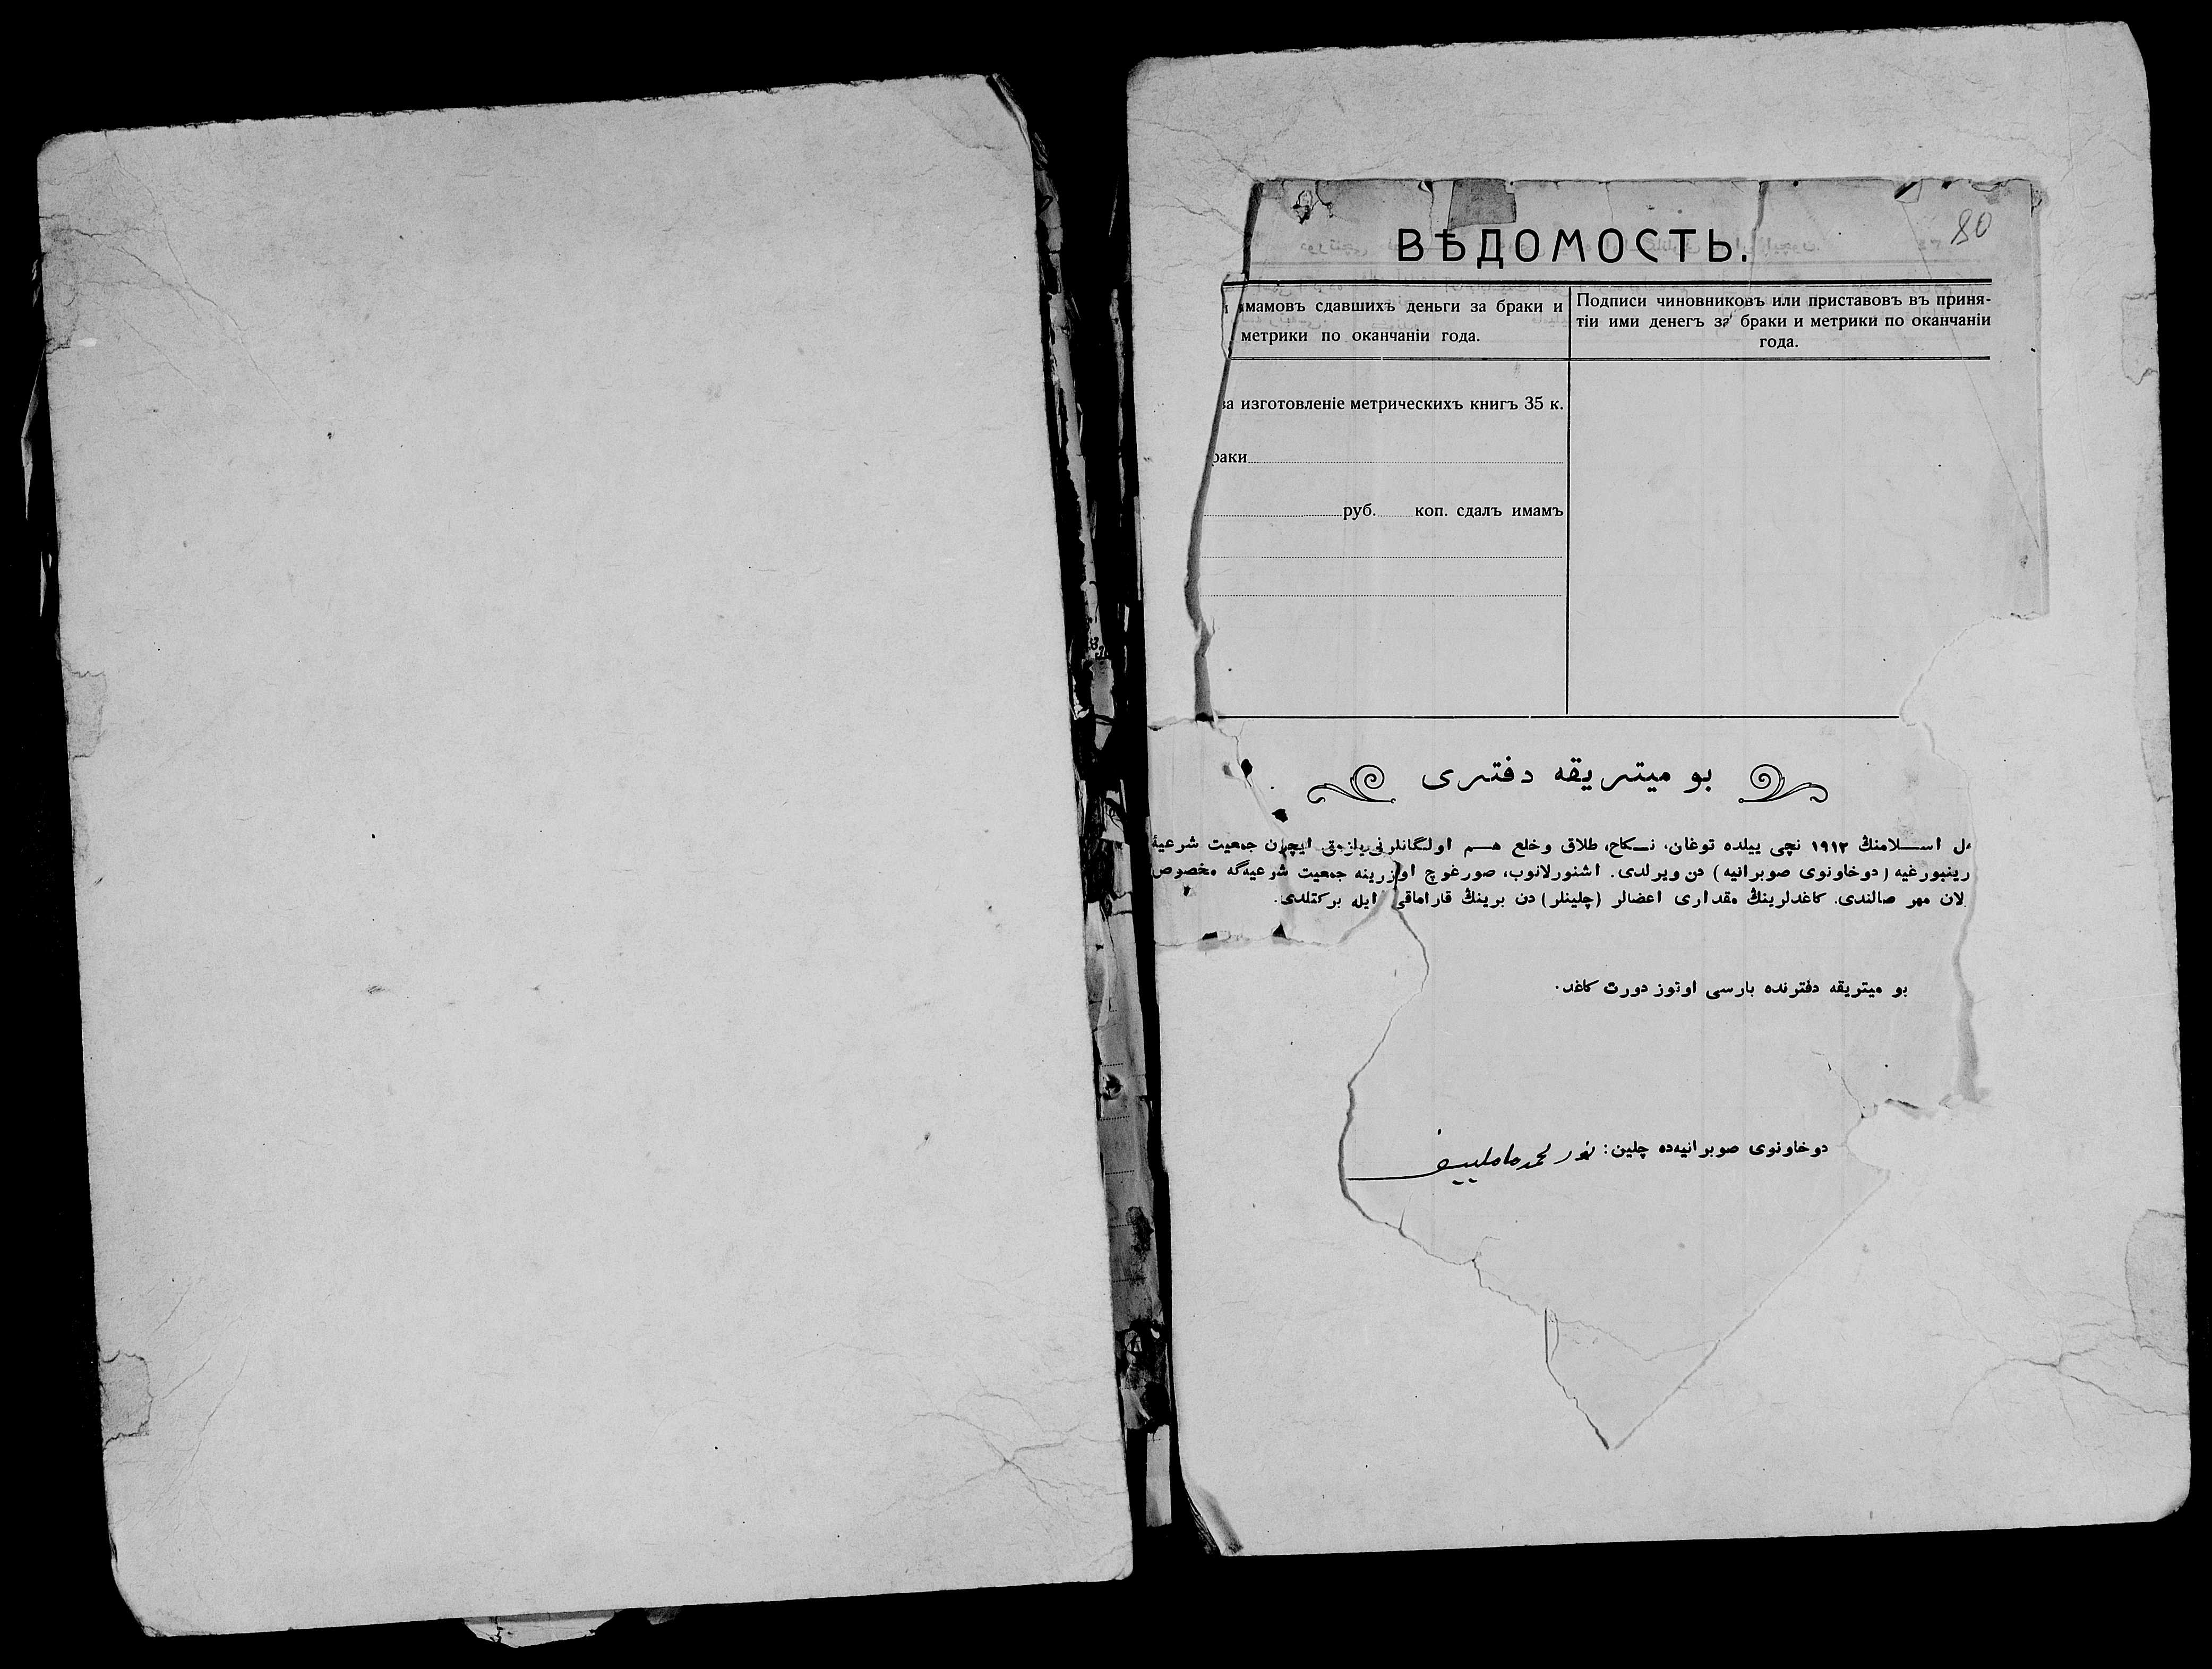 80
ВѢДОМОСТЬ.
имамовъ сдавшихъ деньги за браки и
метрики по окончаніи года.
Подписи чиновниковъ или приставовъ въ приня-
тіи ими денегъ за браки и метрики по окончаніи
года.
за изготовленіе метрическихъ книгъ 35 к.
раки
руб. коп. сдалъ имамъ
بو ميتريقه دفترى
ل اســلامنڭ ١٩١٢ نچى ييلده توغان، نــكاح، طلاق وخلع هــم اولگانلرنى يازمق ايچون جمعيت شرعيهٔ
رينبورغيه (دوخاونوى صوبرانيه) دن ويرلدى. اشنورلانوب، صورغوچ اوزرينه جمعيت شرعيه‌گه مخصوص
لان مهر صالندى. كاغدلرينڭ مقدارى اعضالر (چلينلر) دن برينڭ قاراماقى ايله بركتلدى.
بو ميتريقه دفترنده بارسى اوتوز دورت كاغد.
دوخاونوى صوبرانيه‌ده چلين: نور محمد ماملييف